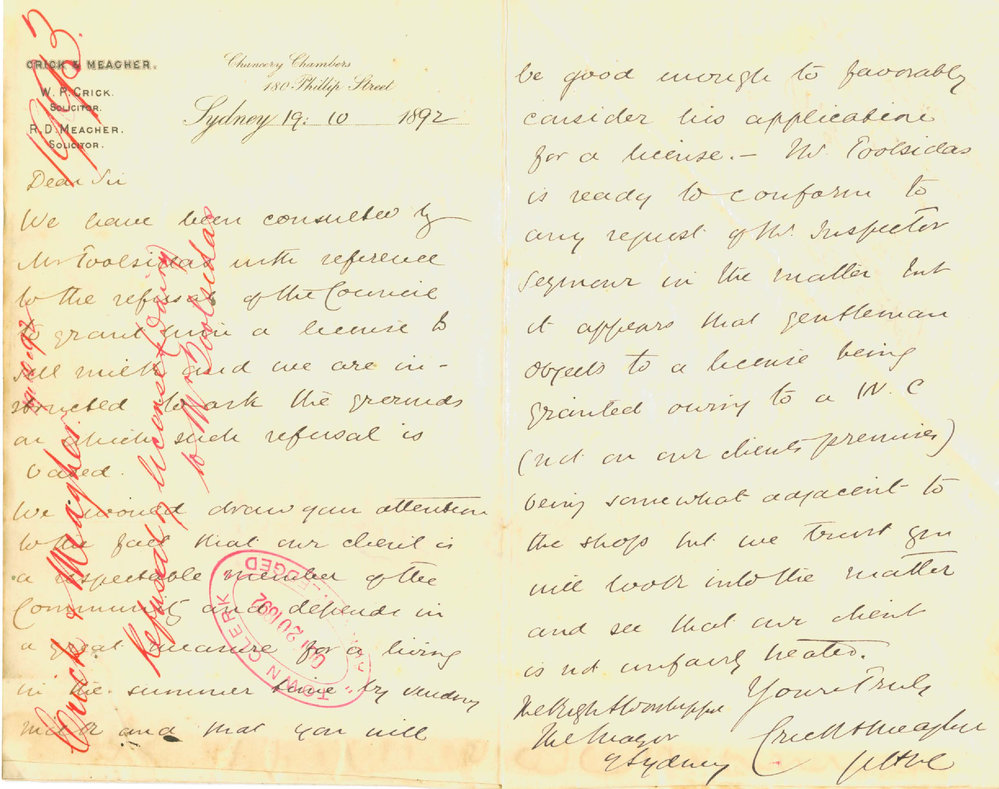 CRICK & MEAGHER.
W. P. CRICK.
SOLICITOR.
R. D. MEAGHER.
SOLICITOR.
Chancery Chambers
180 Phillip Street
Sydney 19: 10 1892
Dear Sir
We have been consulted by
Mr Toolsidas with reference
to the refusal of the Council
to grant him a license to
sell milk and we are in-
structed to ask the grounds
on which such refusal is
based.
We would draw your attention
to the fact that our client is
a respectable member of the
Community and depends in
a great measure for a living
in the summer time by vending
milk and that you will
be good enough to favorably
consider his application
for a license. - Mr. Toolsidas
is ready to conform to
any request of Mr. Inspector
Seymour in the matter but
it appears that gentleman
objects to a license being
granted owing to a W. C
(not on our clients premises)
being somewhat adjacent to
the shop but we trust you
will look into the matter
and see that our client
is not unfairly treated.
Yours Truly
Crick & Meagher
The Right Worshipful
The Mayor
of Sydney
Crick & Meagher 19.10.92
Refusal of license (Dairy)
to Mr Toolsidas
TOWN CLERK